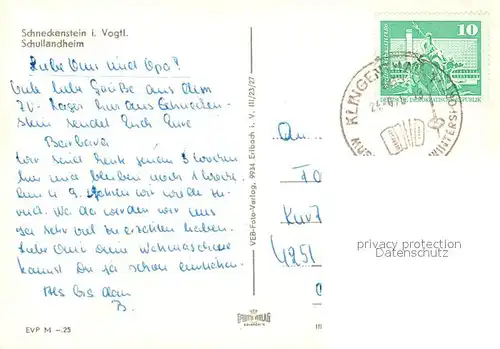 Schneckenstein i. Vogtl.
Schullandheim
Liebe Omi und Opa!
Viele liebe Grüße aus dem
ZV-Lager hier aus Schnecken-
stein sendet Euch Eure
Barbara
Wir sind heute schon 3 Wochen
hier und bleiben noch 1 Woche.
am 4.9. fahren wir wieder zu-
rück. Na da werden wir uns
ja sehr viel zu erzählen haben.
Liebe Omi Deine Waschmaschine
kannst Du ja schon
Also bis dann
B.
EVP M -.25
VEB-Foto-Verlag, 9934 Erlbach i. V. III/23/27
FOTO VERLAG
ERLBACH V.
III
10
DEUTSCHE DEMOKRATISCHE REPUBLIK
KLINGENTHAL
WINTERSPO
An
Kurt
4251
privacy protection
Datenschutz